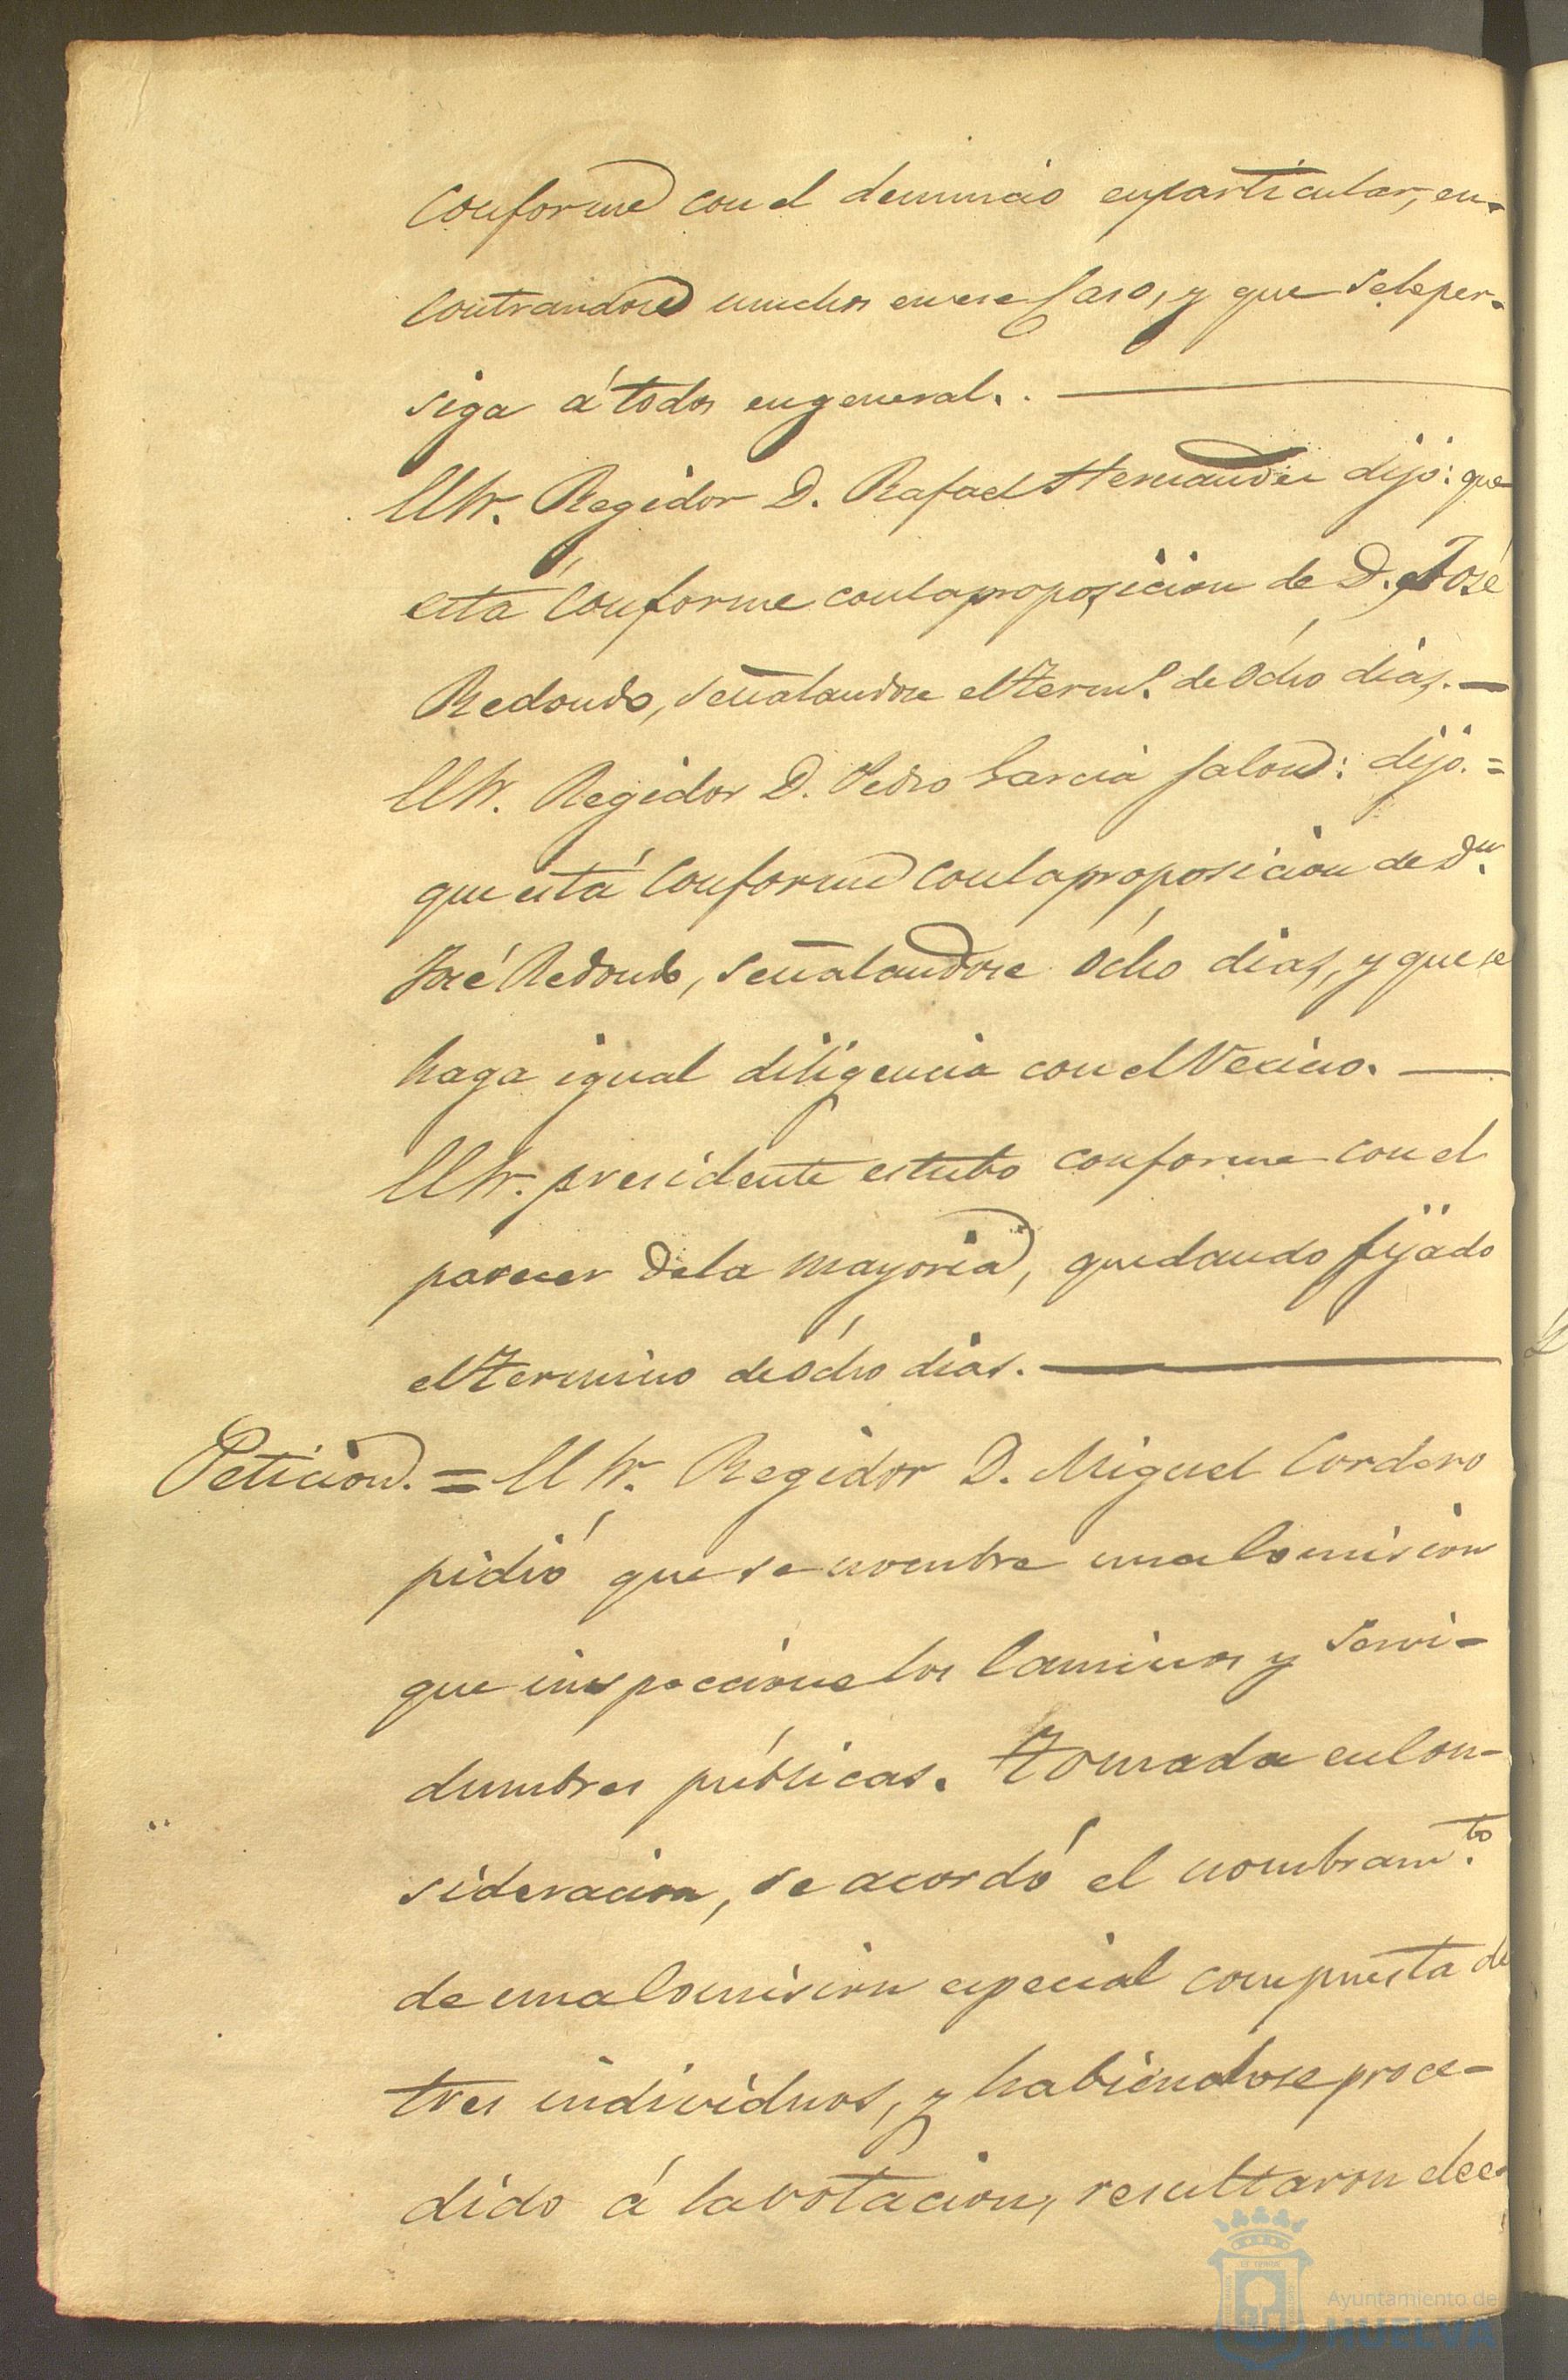 conforme con el denuncio en particular, en-
contrandose muchos en ese Caso, y que se le per-
siga á todos en general. .
El Sr. Regidor D. Rafael Hernandez dijo: que
está conforme con la proposicion de D. José
Redondo, señalandose el term.º de ócho dias. —
El Sr. Regidor D. Pedro Garcia Jalon: dijo. =
que está conforme con la proposicion de Dn.
José Redondo, señalandose ócho dias, y que se
haga igual diligencia con el Vecino. —
El Sr. presidente estubo conforme con el
parecer de la mayoria, quedando fijado
el termino de ócho dias. —
Peticion. = El Sr. Regidor D. Miguel Cordero
pidió que se nombre una Comision
que inspeccione los Caminos y Servi-
dumbres públicas. Tomada en Con-
sideracion, se acordó el nombram.to
de una Comision especial compuesta de
tres individuos, y habiendose proce-
dido á la votacion, resultaron elec-
Ayuntamiento de
HUELVA